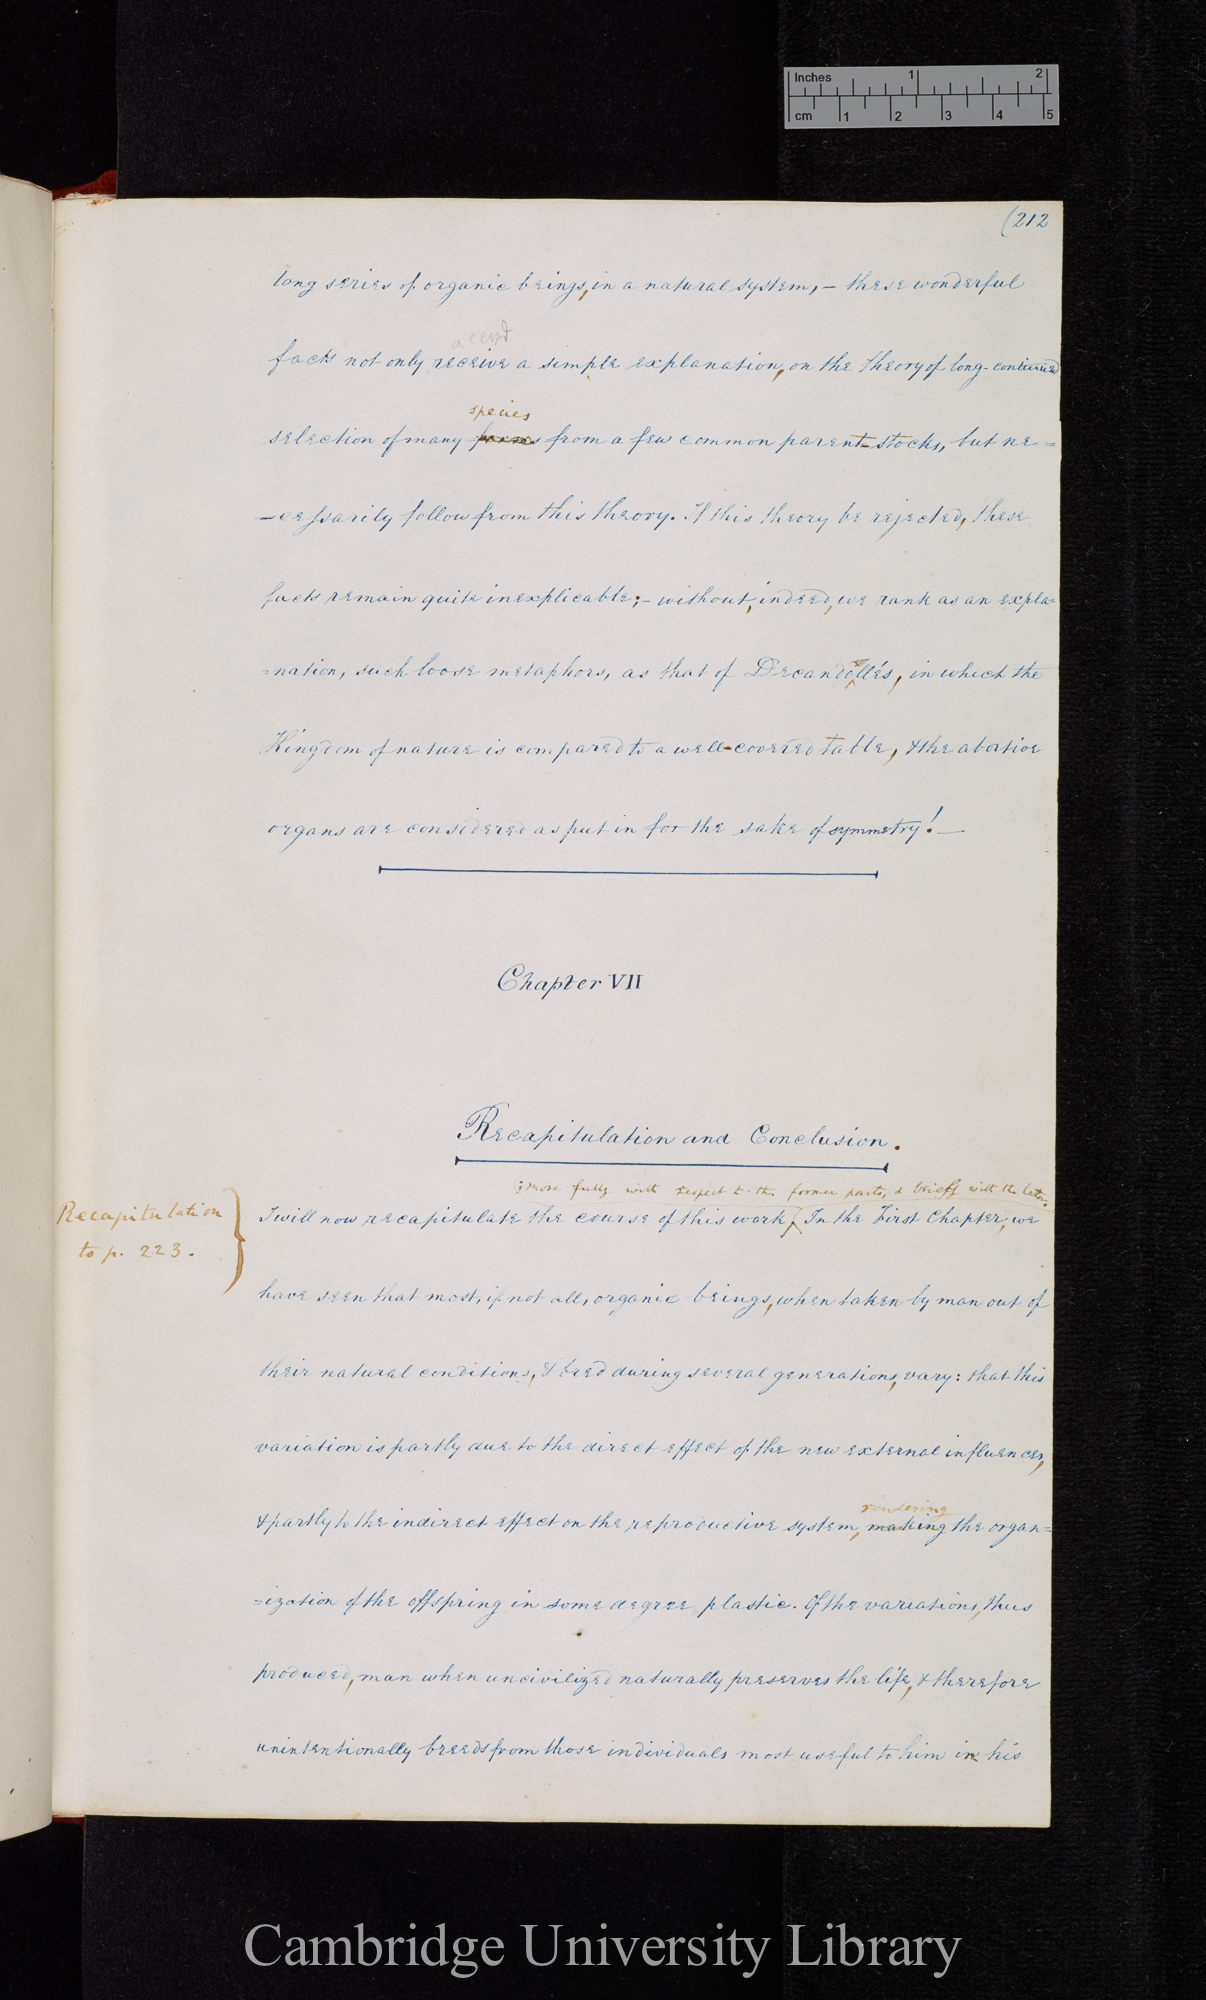 Inches 1 2
cm 1 2 3 4 5
(212
long series of organic beings, in a natural system, – these wonderful
accept
facts not only receive a simple explanation, on the theory of long-continued
species
selection of many forms from a few common parent-stocks, but ne=
–cessarily follow from this theory. If this theory be rejected, these
facts remain quite inexplicable; – without, indeed, we rank as an expla=
=nation, such loose metaphors, as that of Decandolle's, in which the
Kingdom of nature is compared to a well-covered table, & the abortive
organs are considered as put in for the sake of symmetry! —
Chapter VII
Recapitulation and Conclusion.
; more fully with respect to the former parts, & briefly with the latter.
Recapitulation
to p. 223.
I will now recapitulate the course of this work. In the First Chapter, we
have seen that most, if not all, organic beings, when taken by man out of
their natural conditions, & bred during several generations, vary: that this
variation is partly due to the direct effect of the new external influences,
rendering
& partly to the indirect effect on the reproductive system, making the organ=
=ization of the offspring in some degree plastic. Of the variations, thus
produced, man when uncivilized naturally preserves the life, & therefore
unintentionally breeds from those individuals most useful to him in his
Cambridge University Library